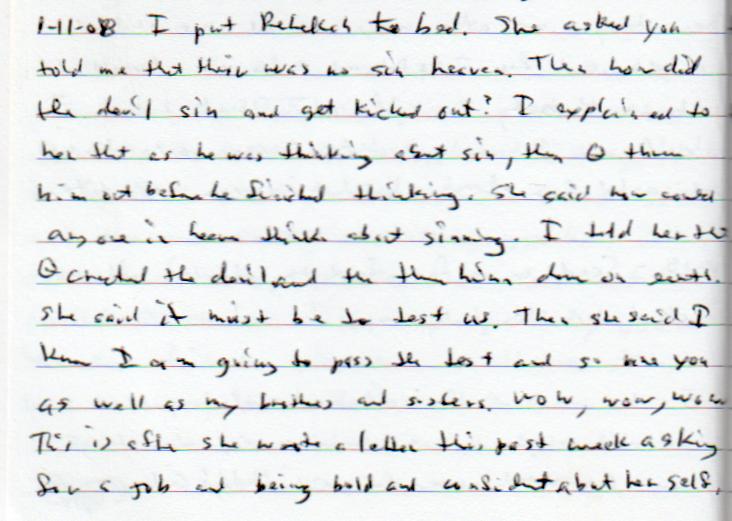 1-11-08 I put Rebekah to bed. She asked you
told me that there was no sin heaven. Then how did
the devil sin and get kicked out? I explained to
her that as he was thinking about sin, then Θ threw
him out before he finished thinking. She said how could
anyone in heaven think about sinning. I told her tht
Θ created the devil and the threw him down on earth.
She said it must be to test us. Then she said I
know I am going to pass the test and so are you
as well as my brothers and sisters. Wow, wow, wow
This is after she wrote a letter this past week asking
for a job and being bold and confident about her self.